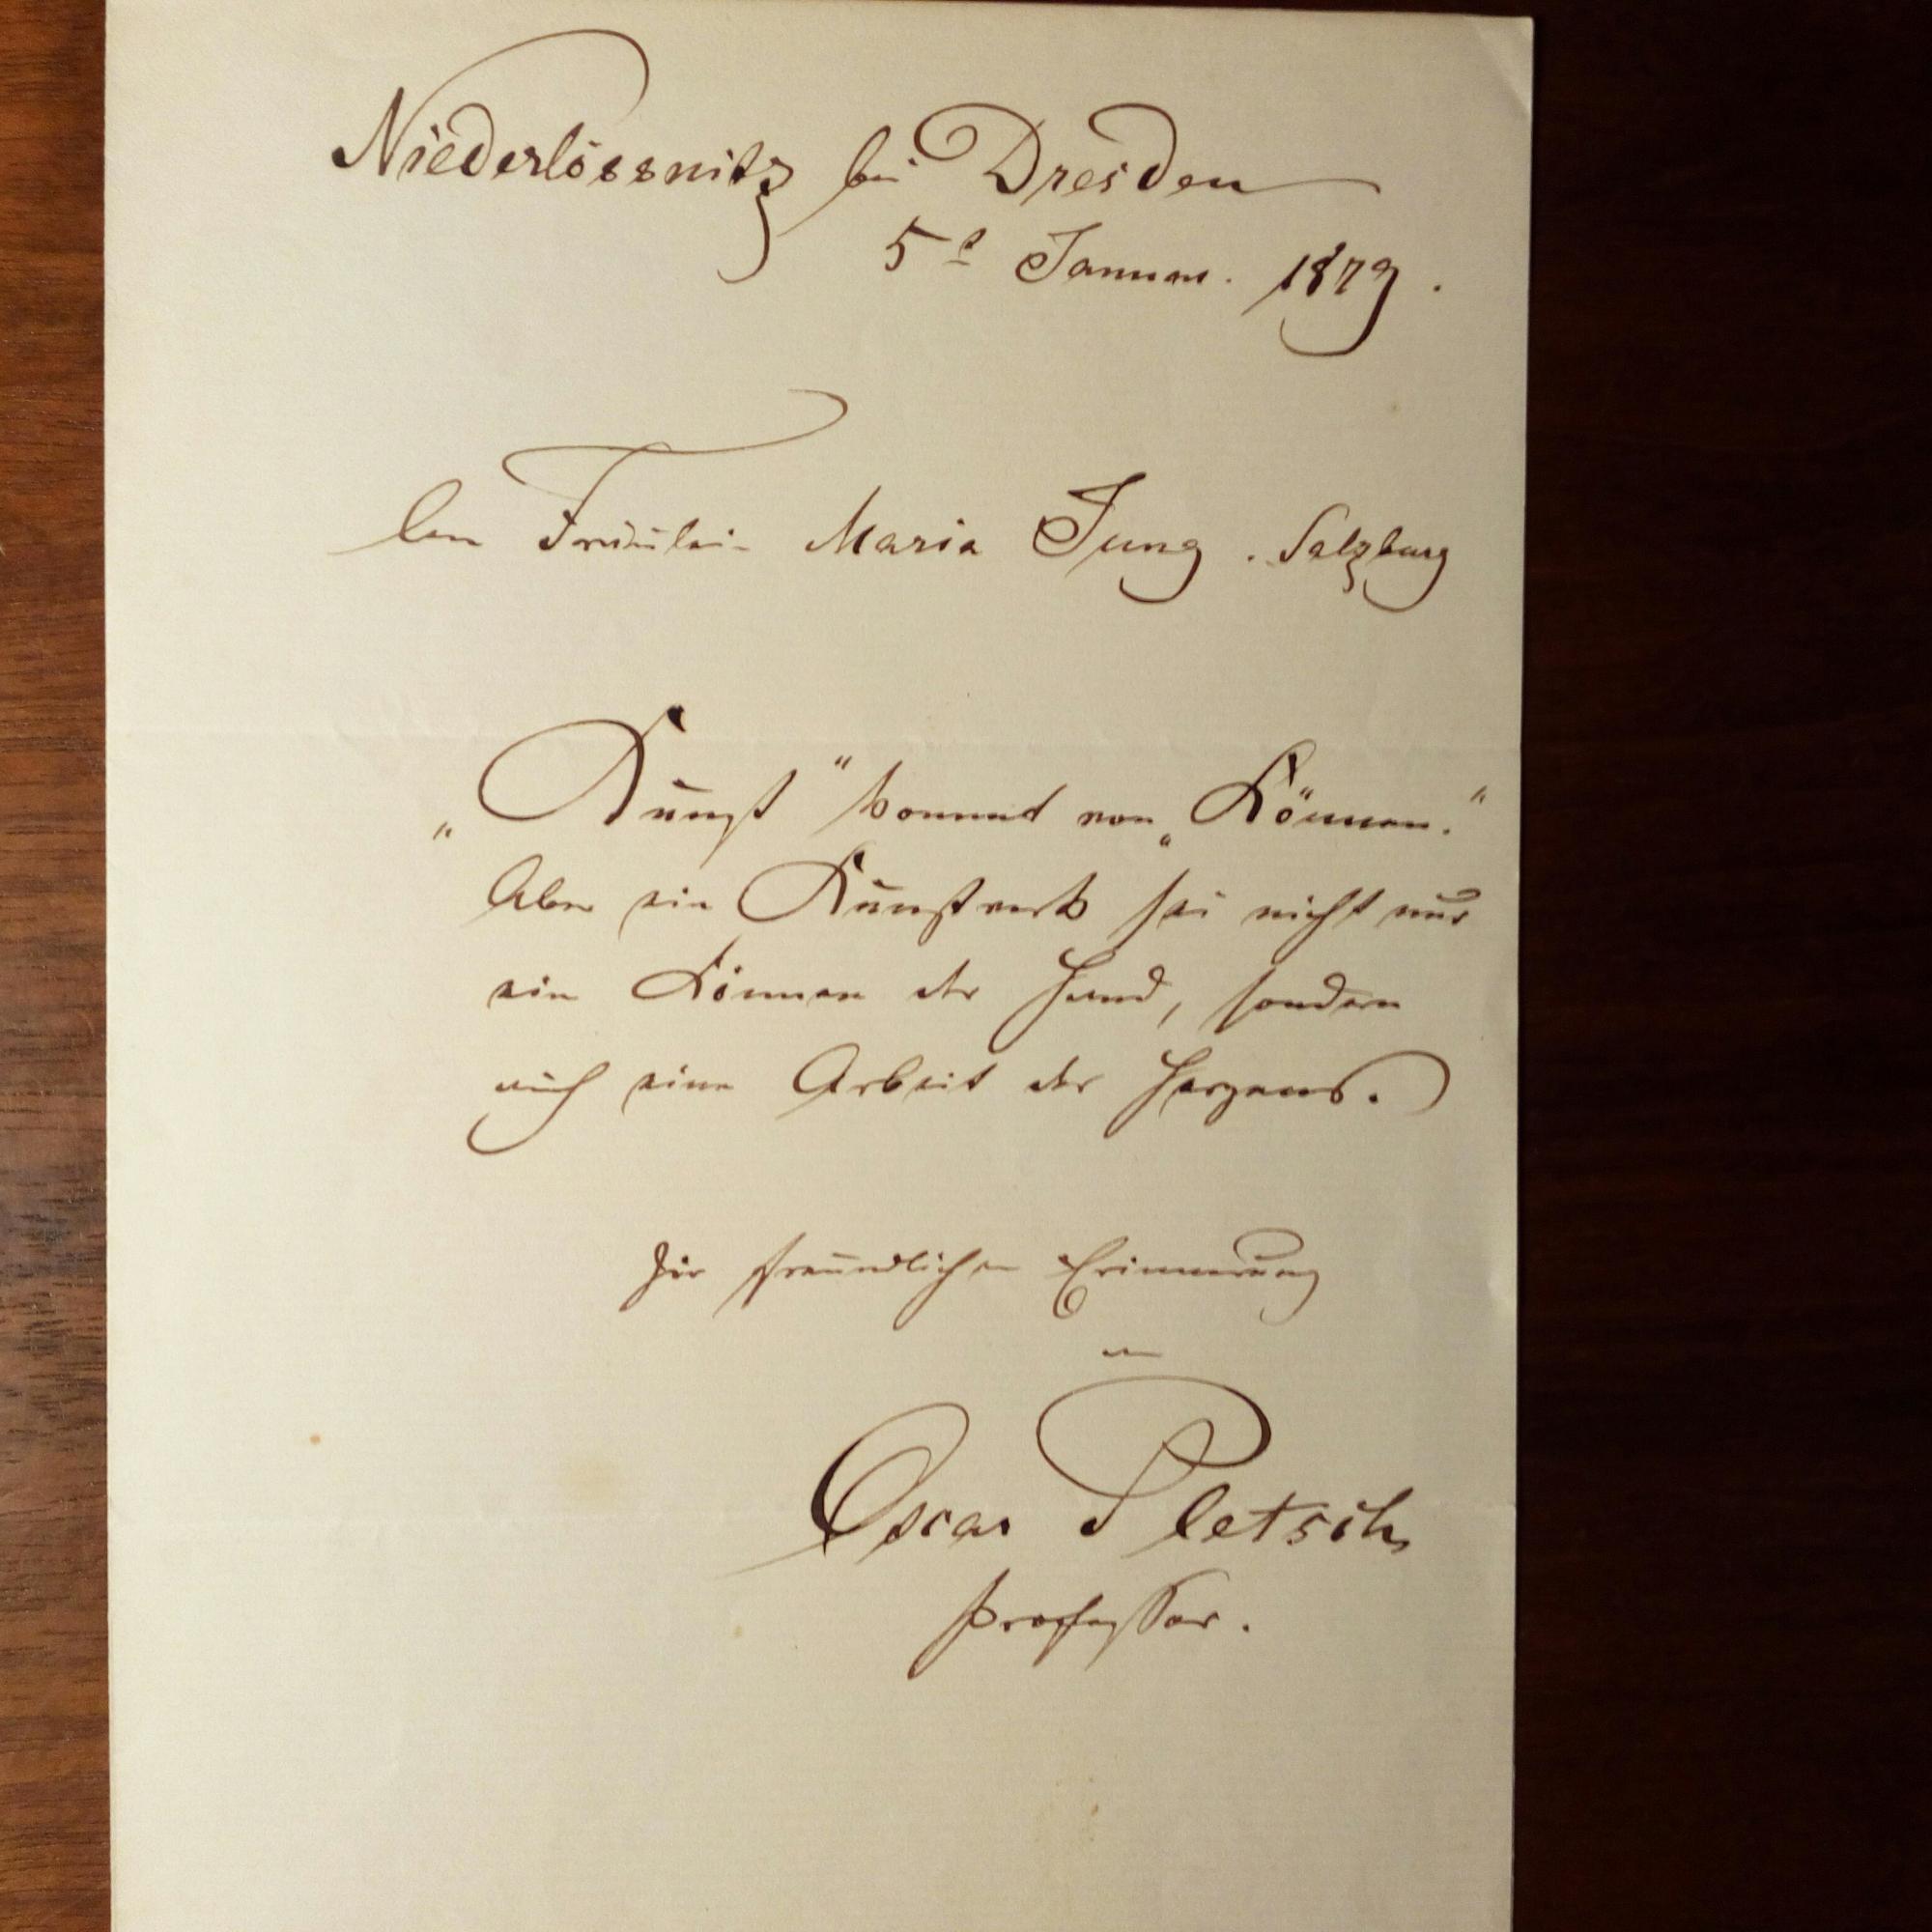 Niederlössnitz bei Dresden
5t Januar. 1879.
An Fräulein Maria Jung. Salzburg
„Kunst" kommt von „Können."
Aber ein Kunstwerk sei nicht nur
ein Können der Hand, sondern
auch eine Arbeit des Herzens.
Zur freundlichen Erinnerung
an
Oscar Pletsch
Professor.